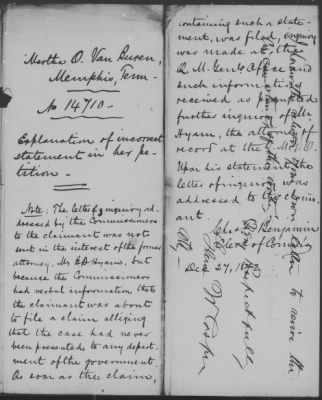 Martha O. Van Buren,
Memphis, Tenn —
No 14710 —
Explanation of incorrect
statement in her pe-
tition —
Note: The letter of inquiry ad-
dressed by the Commissioners
to the claimant was not
sent in the interest of the former
attorney, Mr. Hyam, but
because the Commissioners
had verbal information that
the claimant was about
to file a claim alleging
that the case had never
been presented to any depart-
ment of the government.
As soon as the claim,
containing such a state-
ment, was filed, enquiry
was made at the
Q.M. Genls Office and
such information
received as prompted
further inquiry of Mr.
Hyam, the attorney of
record at the Q.M.G.O.
Upon his statement the
letter of inquiry was
addressed to the claim-
ant.
Chas. Benjamin
Clerk of Com
Dec 27,
Respectfully
Atty